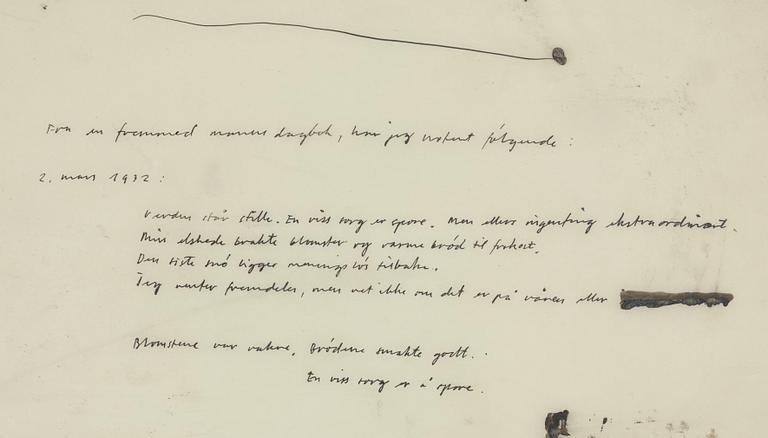 Fra en fremmed manns dagbok, har jeg notert følgende :
2. mars 1932 :
Verden står stille. En viss sorg er spore. Men ellers ingenting ekstraordinært.
Min elskede brakte blomster og varme brød til frokost.
Den siste snø ligger meningsløs tilbake.
Jeg venter fremdeles, men vet ikke om det er på våren eller
Blomstene var vakre. Brødene smakte godt.
En viss sorg er å spore.